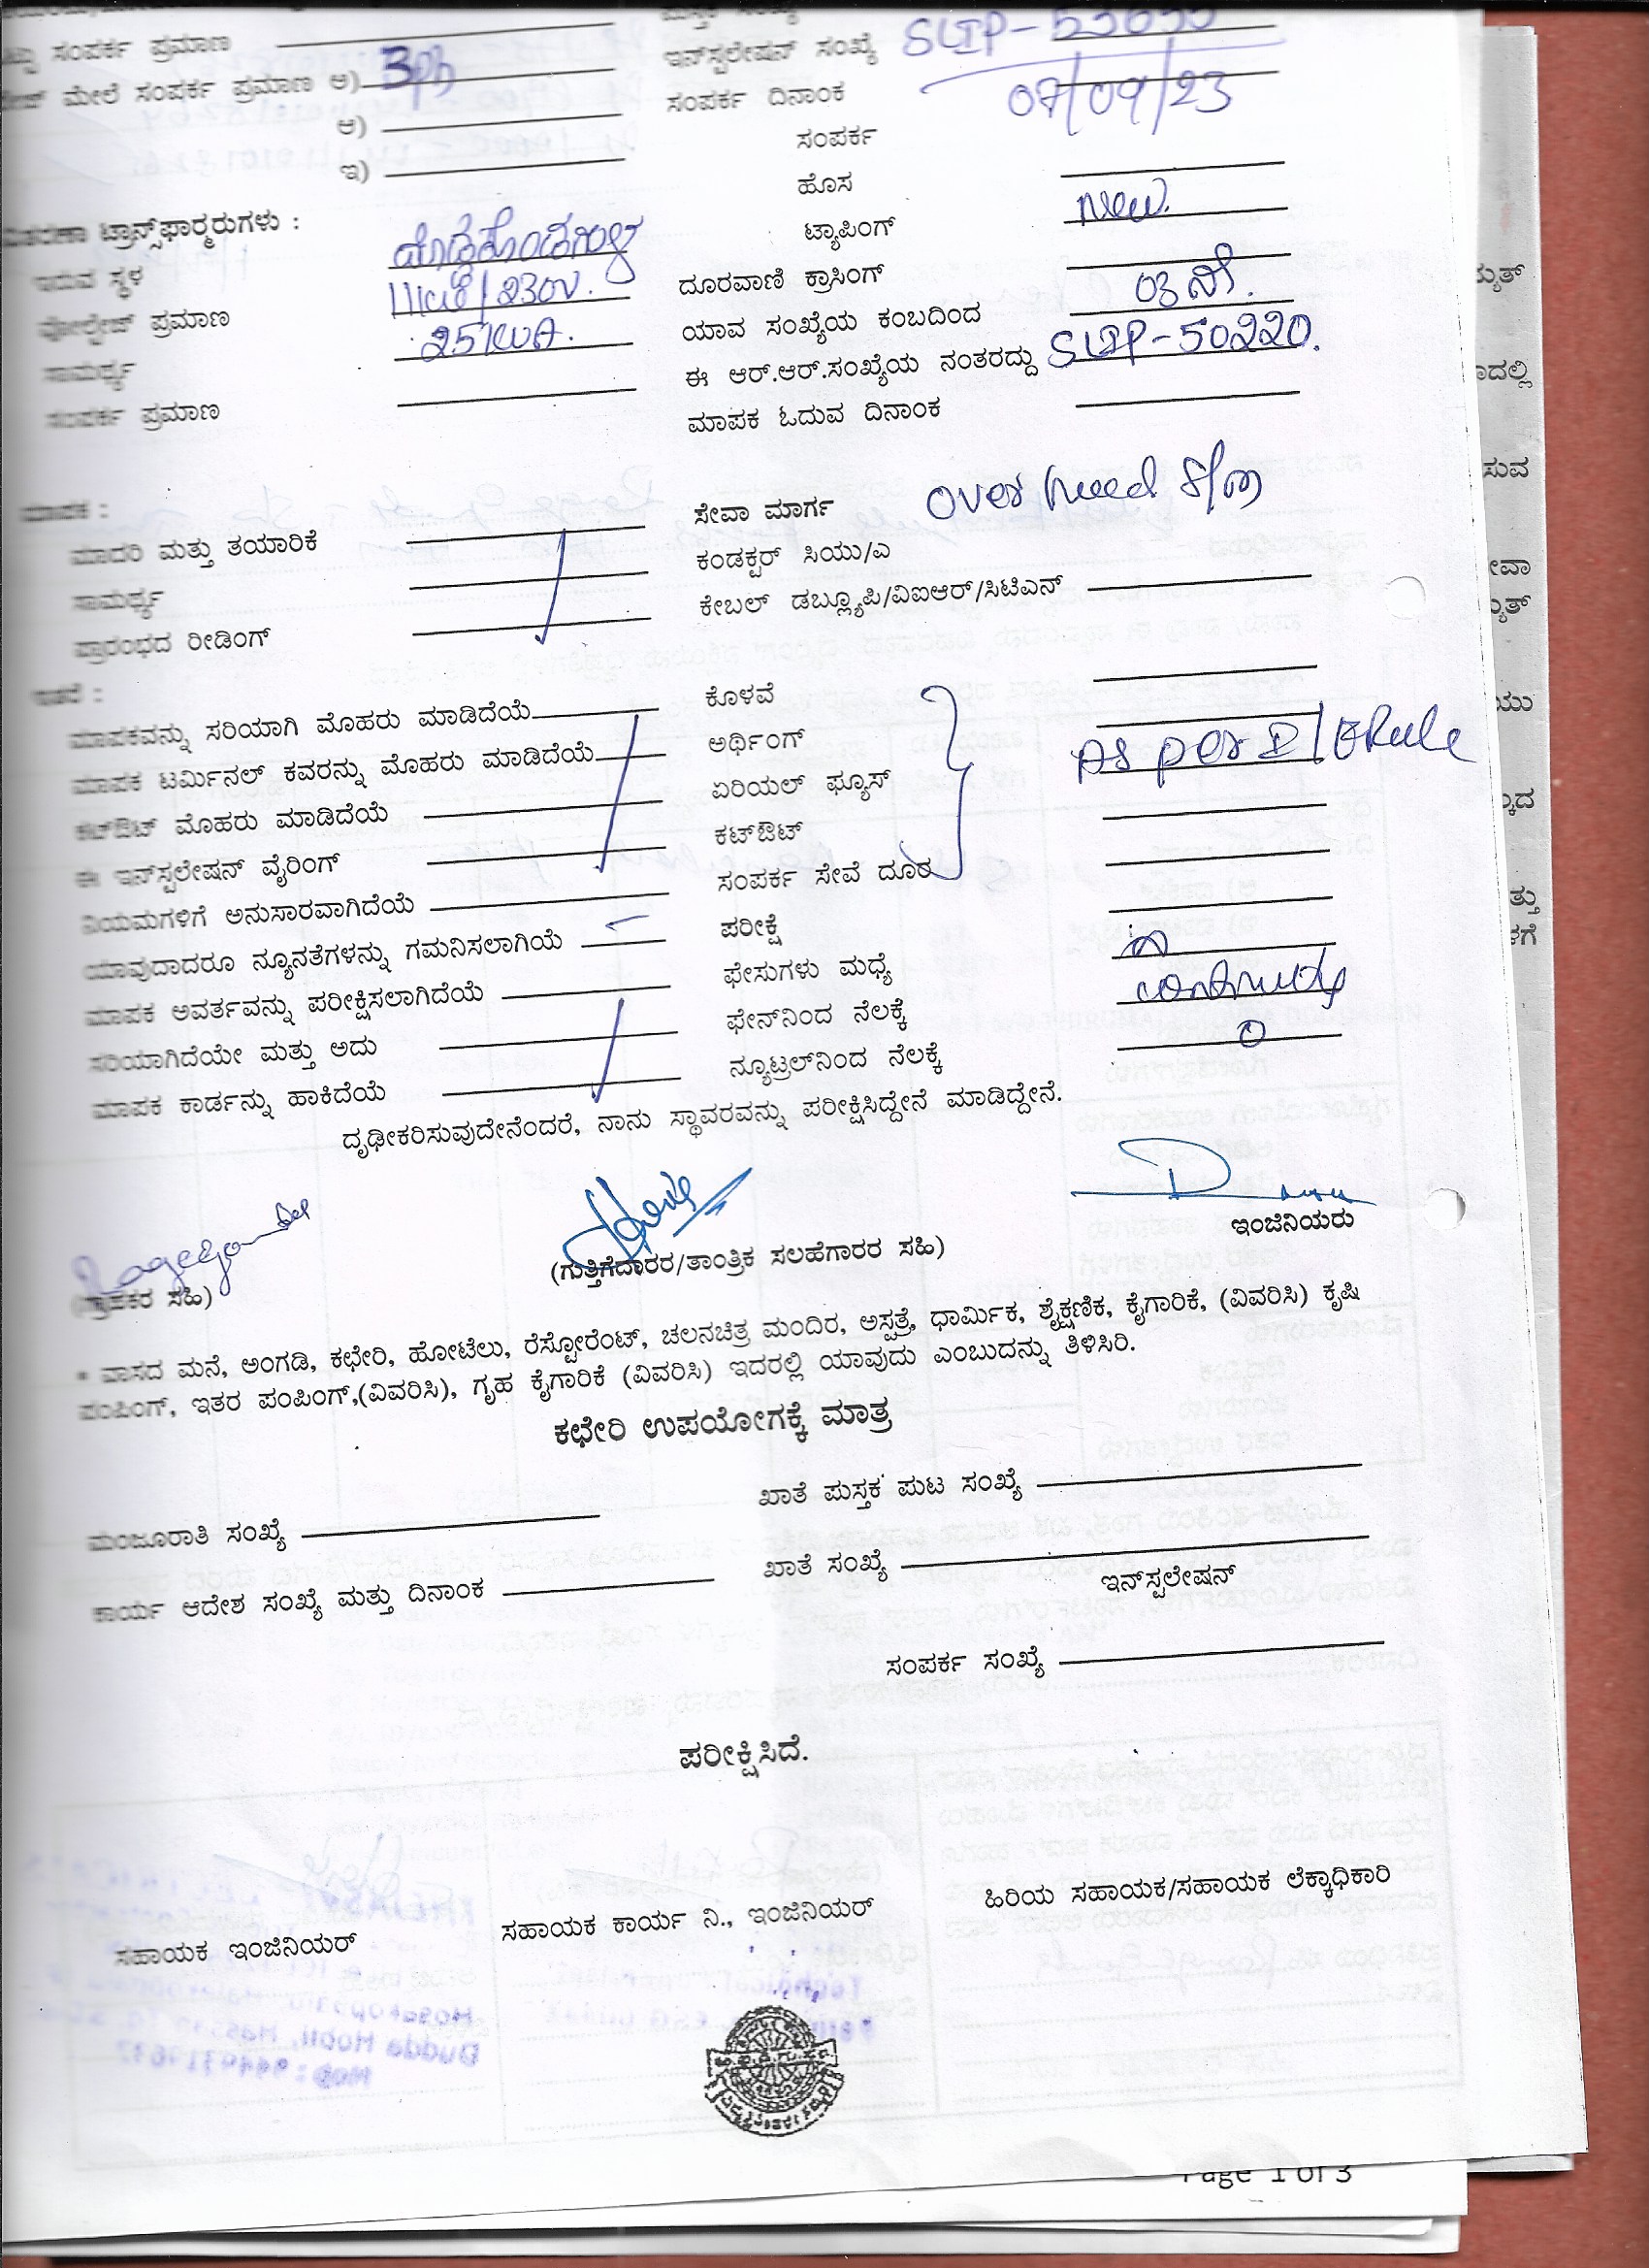 ಸಂಪರ್ಕ ಪ್ರಮಾಣ
ಇನ್‌ಸ್ಟಲೇಷನ್ ಸಂಖ್ಯೆ
ಮೇಲೆ ಸಂಪರ್ಕ ಪ್ರಮಾಣ ಅ) 3ph
ಸಂಪರ್ಕ ದಿನಾಂಕ 07/09/23
ಆ)
ಸಂಪರ್ಕ
ಇ)
ಹೊಸ New
ಟ್ರಾನ್ಸ್‌ಫಾರ್ಮರುಗಳು :
ಟ್ಯಾಪಿಂಗ್
ಇರುವ ಸ್ಥಳ
ದೂರವಾಣಿ ಕ್ರಾಸಿಂಗ್
ವೋಲ್ಟೇಜ್ ಪ್ರಮಾಣ
ಯಾವ ಸಂಖ್ಯೆಯ ಕಂಬದಿಂದ 03 ನೇ.
ಸಾಮರ್ಥ್ಯ 25KVA.
ಈ ಆರ್.ಆರ್.ಸಂಖ್ಯೆಯ ನಂತರದ್ದು SLIP-50220.
ಸಂಪರ್ಕ ಪ್ರಮಾಣ
ಮಾಪಕ ಓದುವ ದಿನಾಂಕ
ಮಾಪಕ :
ಸೇವಾ ಮಾರ್ಗ Over head S/m
ಮಾದರಿ ಮತ್ತು ತಯಾರಿಕೆ
ಕಂಡಕ್ಟರ್ ಸಿಯು/ಎ
ಸಾಮರ್ಥ್ಯ
ಕೇಬಲ್ ಡಬ್ಲ್ಯೂಪಿ/ವಿಐಆರ್/ಸಿಟಿಎನ್
ಪ್ರಾರಂಭದ ರೀಡಿಂಗ್
ಇತರೆ :
ಕೊಳವೆ
ಮಾಪಕವನ್ನು ಸರಿಯಾಗಿ ಮೊಹರು ಮಾಡಿದೆಯೆ
ಅರ್ಥಿಂಗ್ As per I/E Rule
ಮಾಪಕ ಟರ್ಮಿನಲ್ ಕವರನ್ನು ಮೊಹರು ಮಾಡಿದೆಯೆ
ಏರಿಯಲ್ ಫ್ಯೂಸ್
ಕಟ್‌ಔಟ್ ಮೊಹರು ಮಾಡಿದೆಯೆ
ಕಟ್‌ಔಟ್
ಈ ಇನ್‌ಸ್ಟಲೇಷನ್ ವೈರಿಂಗ್
ಸಂಪರ್ಕ ಸೇವೆ ದೂರ
ನಿಯಮಗಳಿಗೆ ಅನುಸಾರವಾಗಿದೆಯೆ
ಪರೀಕ್ಷೆ
ಯಾವುದಾದರೂ ನ್ಯೂನತೆಗಳನ್ನು ಗಮನಿಸಲಾಗಿಯೆ
ಫೇಸುಗಳು ಮಧ್ಯೆ
ಮಾಪಕ ಅವರ್ತವನ್ನು ಪರೀಕ್ಷಿಸಲಾಗಿದೆಯೆ
ಫೇಸ್‌ನಿಂದ ನೆಲಕ್ಕೆ
ಸರಿಯಾಗಿದೆಯೇ ಮತ್ತು ಅದು
ನ್ಯೂಟ್ರಲ್‌ನಿಂದ ನೆಲಕ್ಕೆ 0
ಮಾಪಕ ಕಾರ್ಡನ್ನು ಹಾಕಿದೆಯೆ
ದೃಢೀಕರಿಸುವುದೇನೆಂದರೆ, ನಾನು ಸ್ಥಾವರವನ್ನು ಪರೀಕ್ಷಿಸಿದ್ದೇನೆ ಮಾಡಿದ್ದೇನೆ.
ಇಂಜಿನಿಯರು
(ಗ್ರಾಹಕರ ಸಹಿ)
(ಗುತ್ತಿಗೆದಾರರ/ತಾಂತ್ರಿಕ ಸಲಹೆಗಾರರ ಸಹಿ)
* ವಾಸದ ಮನೆ, ಅಂಗಡಿ, ಕಛೇರಿ, ಹೋಟೆಲು, ರೆಸ್ಟೋರೆಂಟ್, ಚಲನಚಿತ್ರ ಮಂದಿರ, ಅಸ್ಪತ್ರೆ, ಧಾರ್ಮಿಕ, ಶೈಕ್ಷಣಿಕ, ಕೈಗಾರಿಕೆ, (ವಿವರಿಸಿ) ಕೃಷಿ
ಪಂಪಿಂಗ್, ಇತರ ಪಂಪಿಂಗ್,(ವಿವರಿಸಿ), ಗೃಹ ಕೈಗಾರಿಕೆ (ವಿವರಿಸಿ) ಇದರಲ್ಲಿ ಯಾವುದು ಎಂಬುದನ್ನು ತಿಳಿಸಿರಿ.
ಕಛೇರಿ ಉಪಯೋಗಕ್ಕೆ ಮಾತ್ರ
ಖಾತೆ ಪುಸ್ತಕ ಪುಟ ಸಂಖ್ಯೆ
ಮಂಜೂರಾತಿ ಸಂಖ್ಯೆ
ಖಾತೆ ಸಂಖ್ಯೆ
ಇನ್‌ಸ್ಟಲೇಷನ್
ಕಾರ್ಯ ಆದೇಶ ಸಂಖ್ಯೆ ಮತ್ತು ದಿನಾಂಕ
ಸಂಪರ್ಕ ಸಂಖ್ಯೆ
ಪರೀಕ್ಷಿಸಿದೆ.
ಸಹಾಯಕ ಇಂಜಿನಿಯರ್
ಸಹಾಯಕ ಕಾರ್ಯ ನಿ., ಇಂಜಿನಿಯರ್
ಹಿರಿಯ ಸಹಾಯಕ/ಸಹಾಯಕ ಲೆಕ್ಕಾಧಿಕಾರಿ
Page 1 of 3